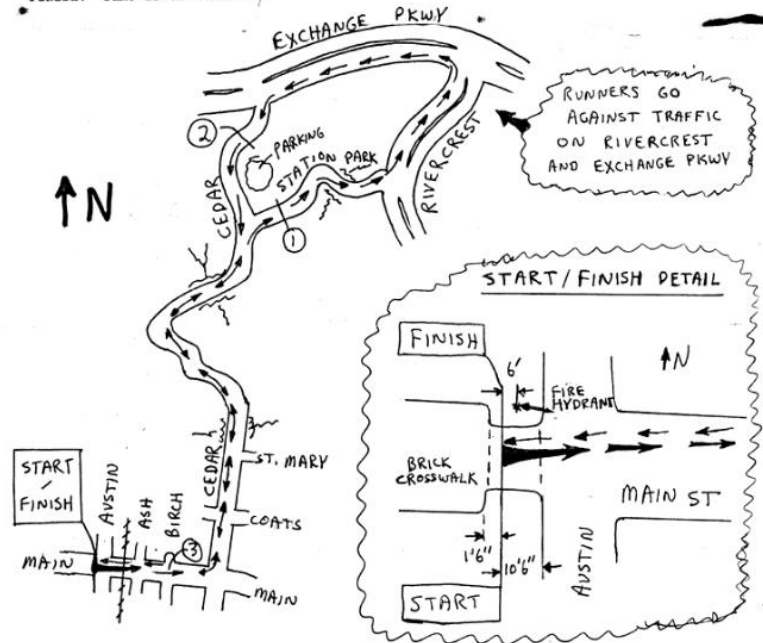 EXCHANGE PKWY
RUNNERS GO
AGAINST TRAFFIC
ON RIVERCREST
AND EXCHANGE PKWY
2
PARKING
STATION PARK
RIVERCREST
CEDAR
1
N
START/FINISH DETAIL
FINISH
6'
N
FIRE
HYDRANT
BRICK
CROSSWALK
MAIN ST
1'6"
10'6"
AUSTIN
START
CEDAR
ST. MARY
COATS
START
/
FINISH
AUSTIN
ASH
BIRCH
3
MAIN
MAIN